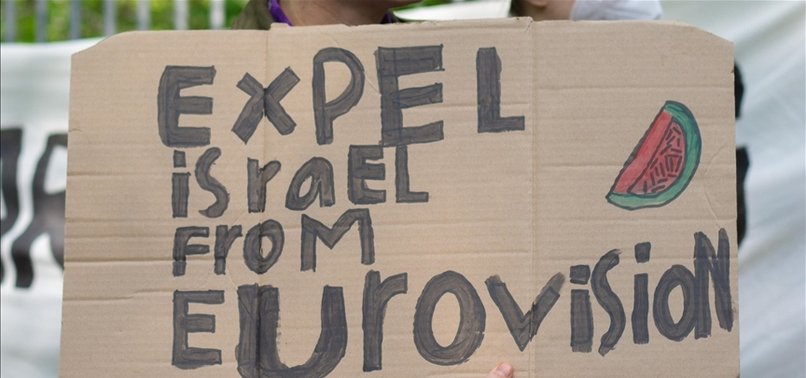 EXPEL
israEL
From
EUrovisioN